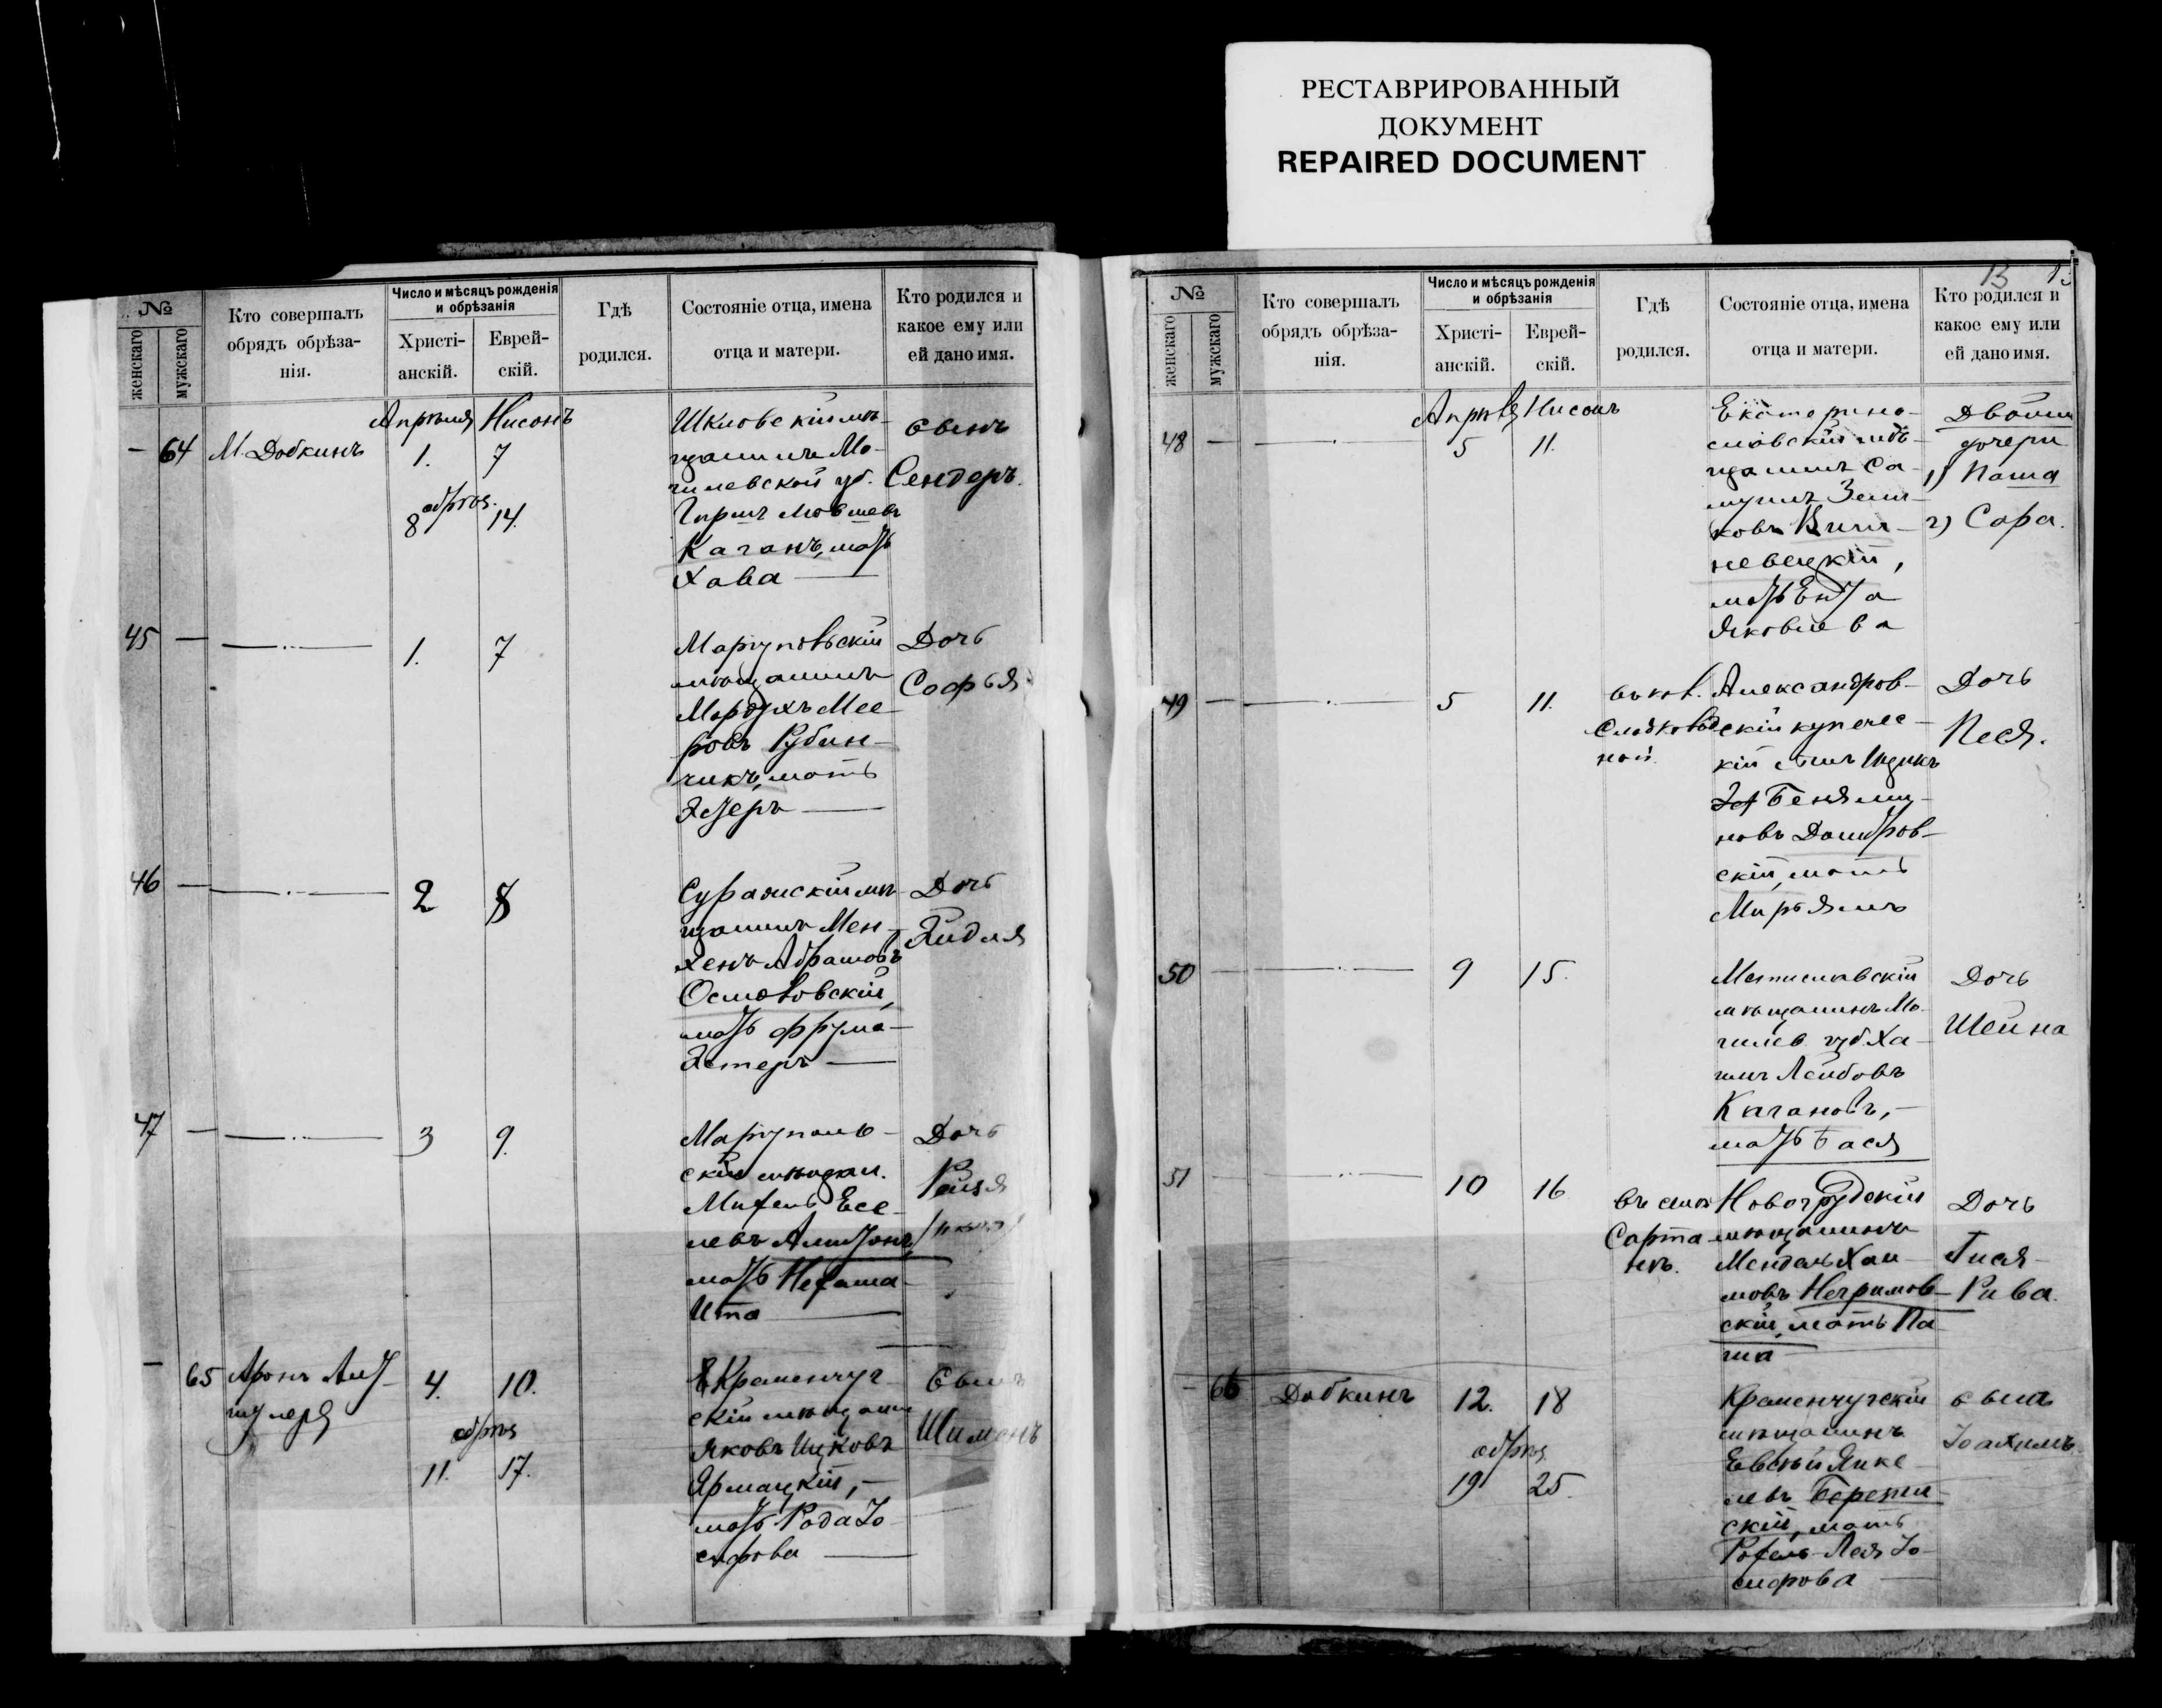 РЕСТАВРИРОВАННЫЙ
ДОКУМЕНТ
REPAIRED DOCUMENT
№
женскаго
мужскаго
Кто совершалъ
обрядъ обрѣза-
нія.
Число и мѣсяцъ рожденія
и обрѣзанія
Христі-
анскій.
Еврей-
скій.
Гдѣ
родился.
Состояніе отца, имена
отца и матери.
Кто родился и
какое ему или
ей дано имя.
Апрѣля Нисонъ
— 64 М. Добкинъ 1. 7
обрѣз.
8 14.
Шкловскій мѣ-
щанинъ Мо-
гилевской губ.
Гиршъ Мовшевъ
Каганъ, мать
Хава —
сынъ
Сендеръ.
45 — —·— 1. 7
Маріупольскій
мѣщанинъ
Мордухъ Мее-
ровъ Рубин-
чикъ, мать
Эстеръ —
Дочь
Софья.
46 — —·— 2 8
Суражскій мѣ-
щанинъ Мен-
Абрамовъ
мать Фрума-
Эстеръ —
Дочь
Эйдля
47 — —·— 3 9.
Маріуполь-
скій мѣщан.
Михель Есе-
левъ
мать Нехама-
Ита —
Дочь
Рейзя
— 65 Аронъ 4. 10.
обрѣз
11. 17.
Кременчуг-
скій мѣщанин
Яковъ Ицковъ
Ярмацкій, —
мать Рода Іо-
сифова —
Сынъ
Шимонъ
13
№
женскаго
мужскаго
Кто совершалъ
обрядъ обрѣза-
нія.
Число и мѣсяцъ рожденія
и обрѣзанія
Христі-
анскій.
Еврей-
скій.
Гдѣ
родился.
Состояніе отца, имена
отца и матери.
Кто родился и
какое ему или
ей дано имя.
Апрѣля Нисонъ
48 — —·— 5 11.
Екатерино-
славскій мѣ-
щанинъ Са-
муилъ Зели-
ковъ Киши-
невецкій,
мать Ента
Яковлева
Двойни
дочери
1) Паша
2) Сара.
49 — —·— 5 11.
Александров-
скій купечес-
кій сынъ Ицикъ
Беньями-
новъ
скій, мать
Мирьямъ
Дочь
Песя.
50 — —·— 9 15.
Мстиславскій
мѣщанинъ Мо-
гилев. губ. Ха-
имъ Лейбовъ
мать Бася
Дочь
Шейна
51 —·— 10 16
въ селѣ
Сарта-
нѣ.
Новогрудскій
мѣщанинъ
Мендель Хаи-
мовъ Негримов-
скій, мать Па-
ша
Дочь
Гися-
Рива.
— 66 Добкинъ 12. 18
обрѣз.
19 25.
Кременчугскій
мѣщанинъ
Евсѣй Янке-
левъ
скій, мать
Рохель-Лея Іо-
сифова —
сынъ
Іоахимъ